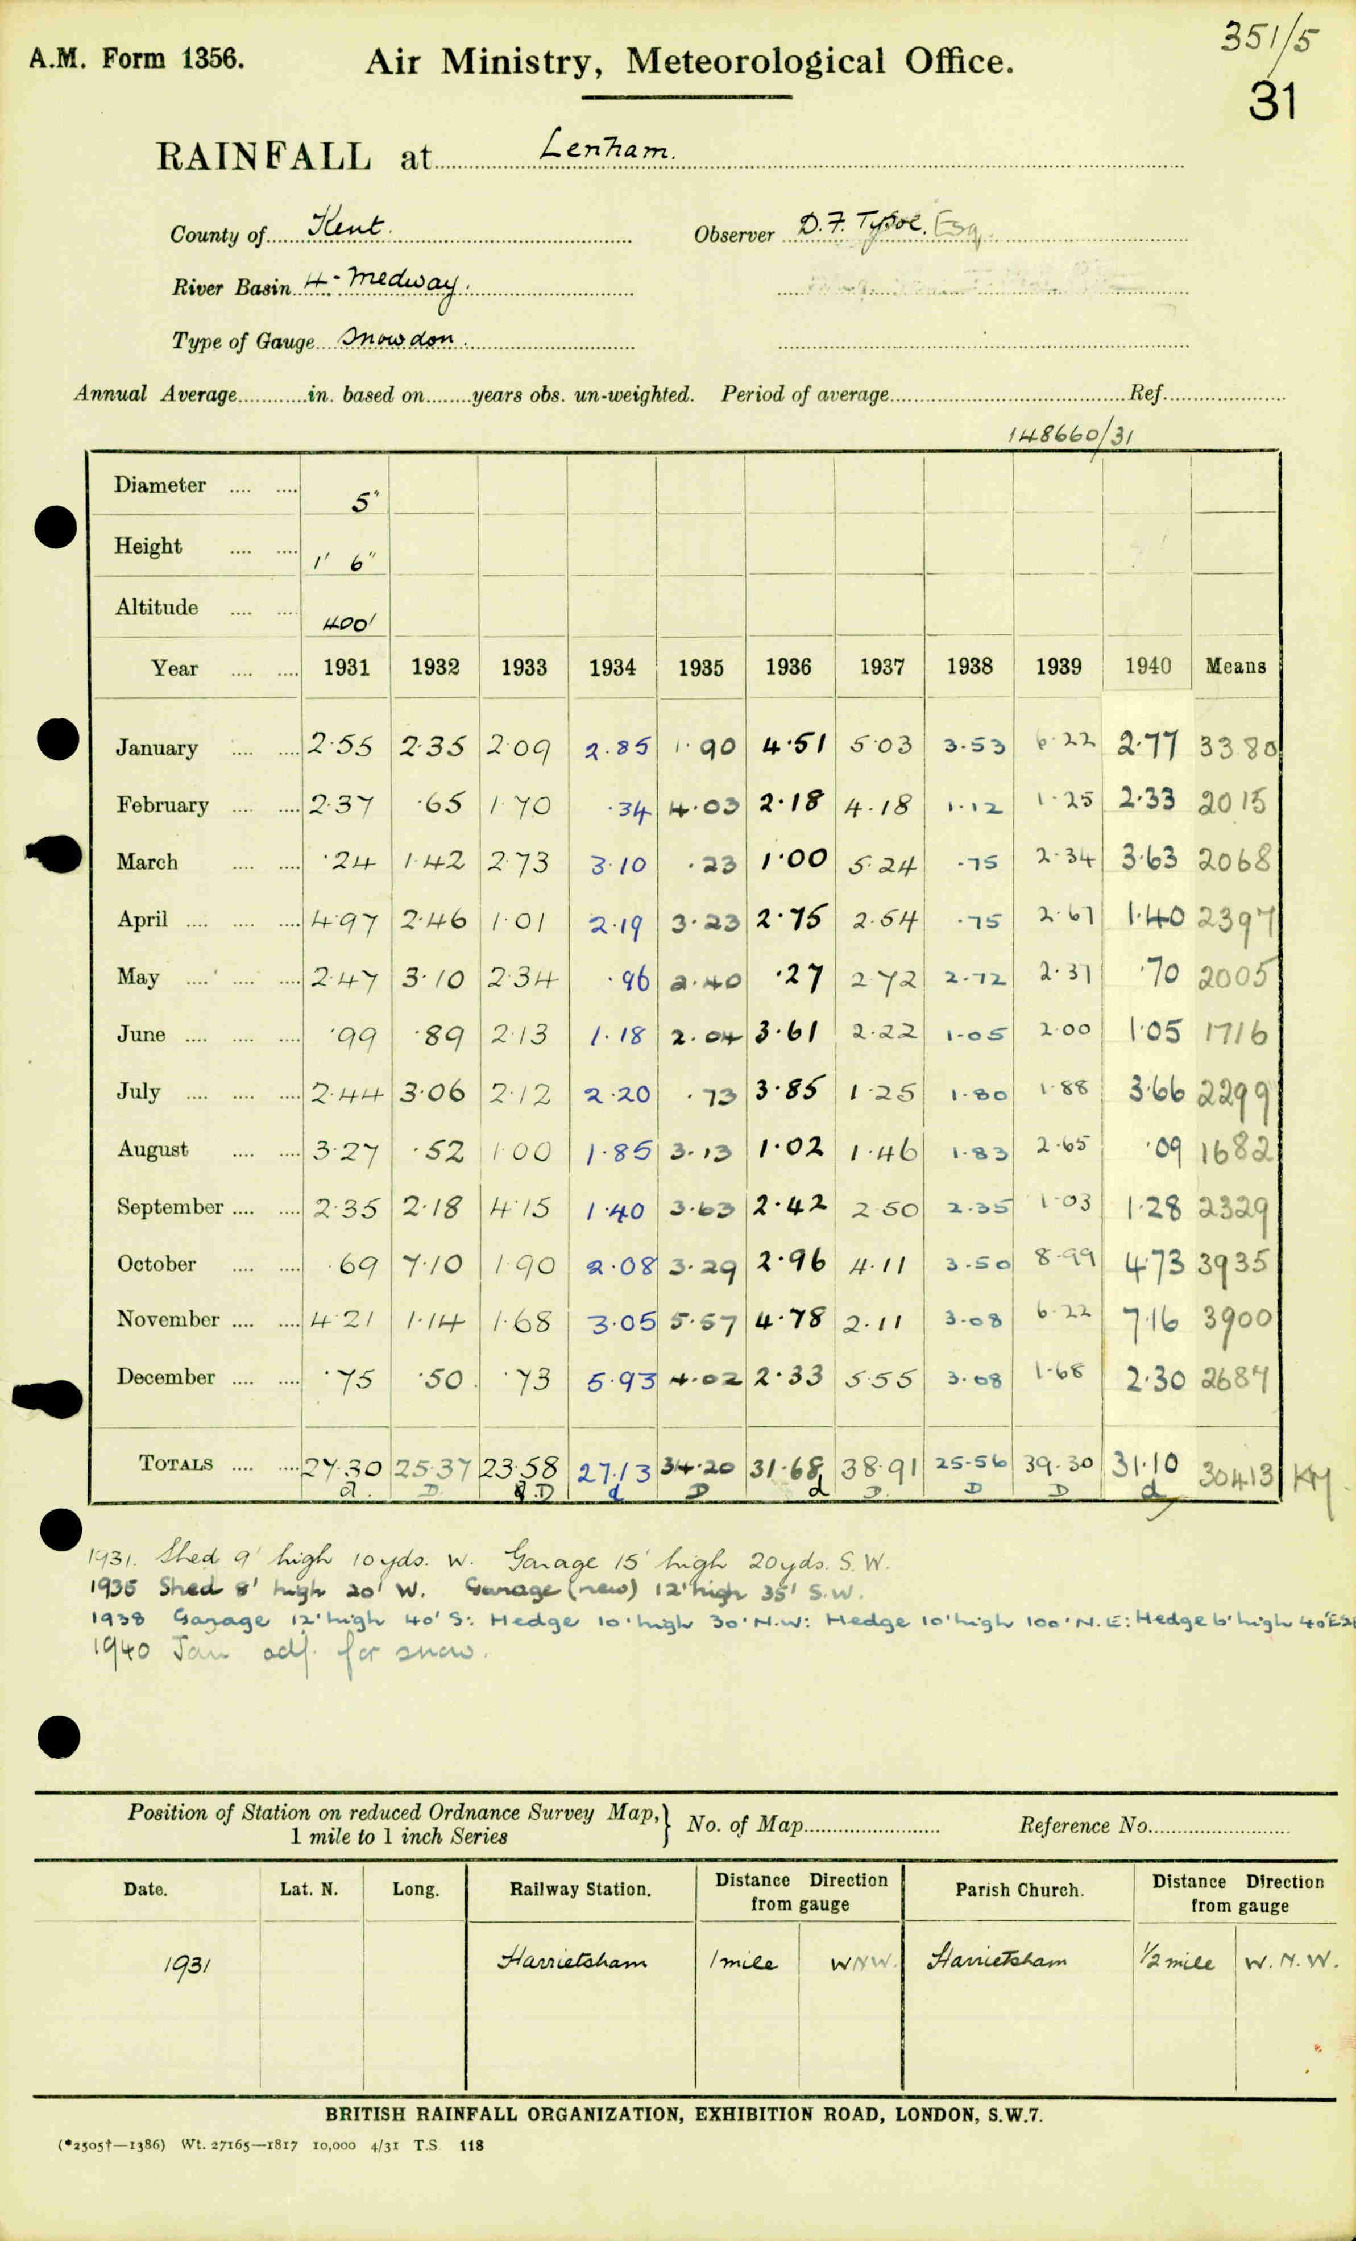 351/5
A.M. Form 1356. Air Ministry, Meteorological Office.
31
RAINFALL at Lenham.
County of Kent. Observer D. F. Tysoe, Esq.
River Basin 4 - Medway.
Type of Gauge Snowdon.
Annual Average in. based on years obs. un-weighted. Period of average Ref.
148660/31
Diameter 5"
Height 1' 6"
Altitude 400'
Year 1931 1932 1933 1934 1935 1936 1937 1938 1939 1940 Means
January 2·55 2·35 2·09 2·85 1·90 4·51 5·03 3·53 6·22 2·77 33 80
February 2·37 ·65 1·70 ·34 4·03 2·18 4·18 1·12 1·25 2·33 20 15
March ·24 1·42 2·73 3·10 ·23 1·00 5·24 ·75 2·34 3·63 2068
April 4·97 2·46 1·01 2·19 3·23 2·75 2·54 ·75 2·67 1·40 2397
May 2·47 3·10 2·34 ·96 2·40 ·27 2·72 2·72 2·37 ·70 2005
June ·99 ·89 2·13 1·18 2·04 3·61 2·22 1·05 2·00 1·05 1716
July 2·44 3·06 2·12 2·20 ·73 3·85 1·25 1·80 1·88 3·66 2299
August 3·27 ·52 1·00 1·85 3·13 1·02 1·46 1·83 2·65 ·09 1682
September 2·35 2·18 4·15 1·40 3·63 2·42 2·50 2·35 1·03 1·28 2329
October ·69 7·10 1·90 2·08 3·29 2·96 4·11 3·50 8·99 4·73 3935
November 4·21 1·14 1·68 3·05 5·57 4·78 2·11 3·08 6·22 7·16 3900
December ·75 ·50 ·73 5·93 4·02 2·33 5·55 3·08 1·68 2·30 2687
TOTALS 27·30 25·37 23·58 27·13 34·20 31·68 38·91 25·56 39·30 31·10 30413 KM
d. D D d D d D. D D d
1931. Shed 9' high 10yds. W. Garage 15' high 20yds. S.W.
1935 Shed 8' high 20' W. Garage (new) 12' high 35' S.W.
1938 Garage 12' high 40' S: Hedge 10' high 30' N.W: Hedge 10' high 100' N.E: Hedge 6' high 40'
1940 Jan adj. for snow.
Position of Station on reduced Ordnance Survey Map, } No. of Map Reference No.
1 mile to 1 inch Series
Date. Lat. N. Long. Railway Station. Distance from gauge Direction Parish Church. Distance from gauge Direction
1931 Harrietsham 1 mile WNW. Harrietsham 1/2 mile W.N.W.
BRITISH RAINFALL ORGANIZATION, EXHIBITION ROAD, LONDON, S.W.7.
(*2505†—1386) Wt. 27165—1817 10,000 4/31 T.S. 118